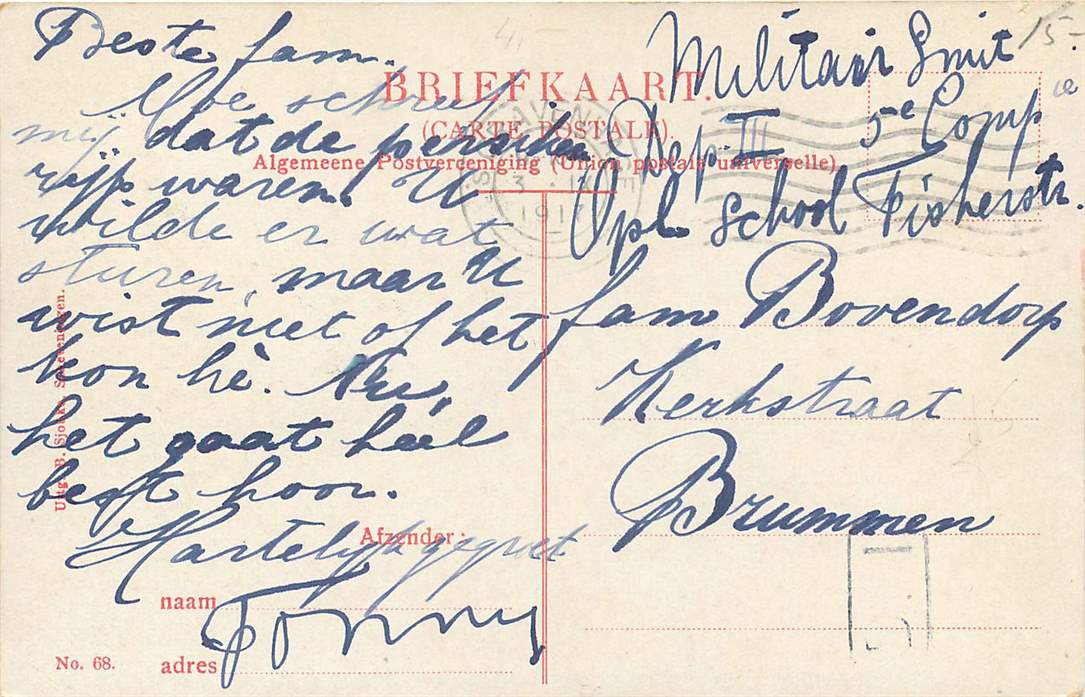 4,-
15-
Beste fam.
Moe schreef
mij dat de perziken
rijp waren. U
wilde er wat
sturen, maar U
wist niet of het
kon hè. Nu,
het gaat heel
best hoor.
Hartelijk gegroet
Tonny
BRIEFKAART.
(CARTE POSTALE).
Algemeene Postvereeniging (Union postale universelle)
Militair Smit
5e Comp
Dep. III
Opl. School Fisherstr.
fam Bovendorp
Kerkstraat
Brummen
Afzender:
naam
adres
No. 68.
Uitg. B. Sjoerds, Scheveningen.